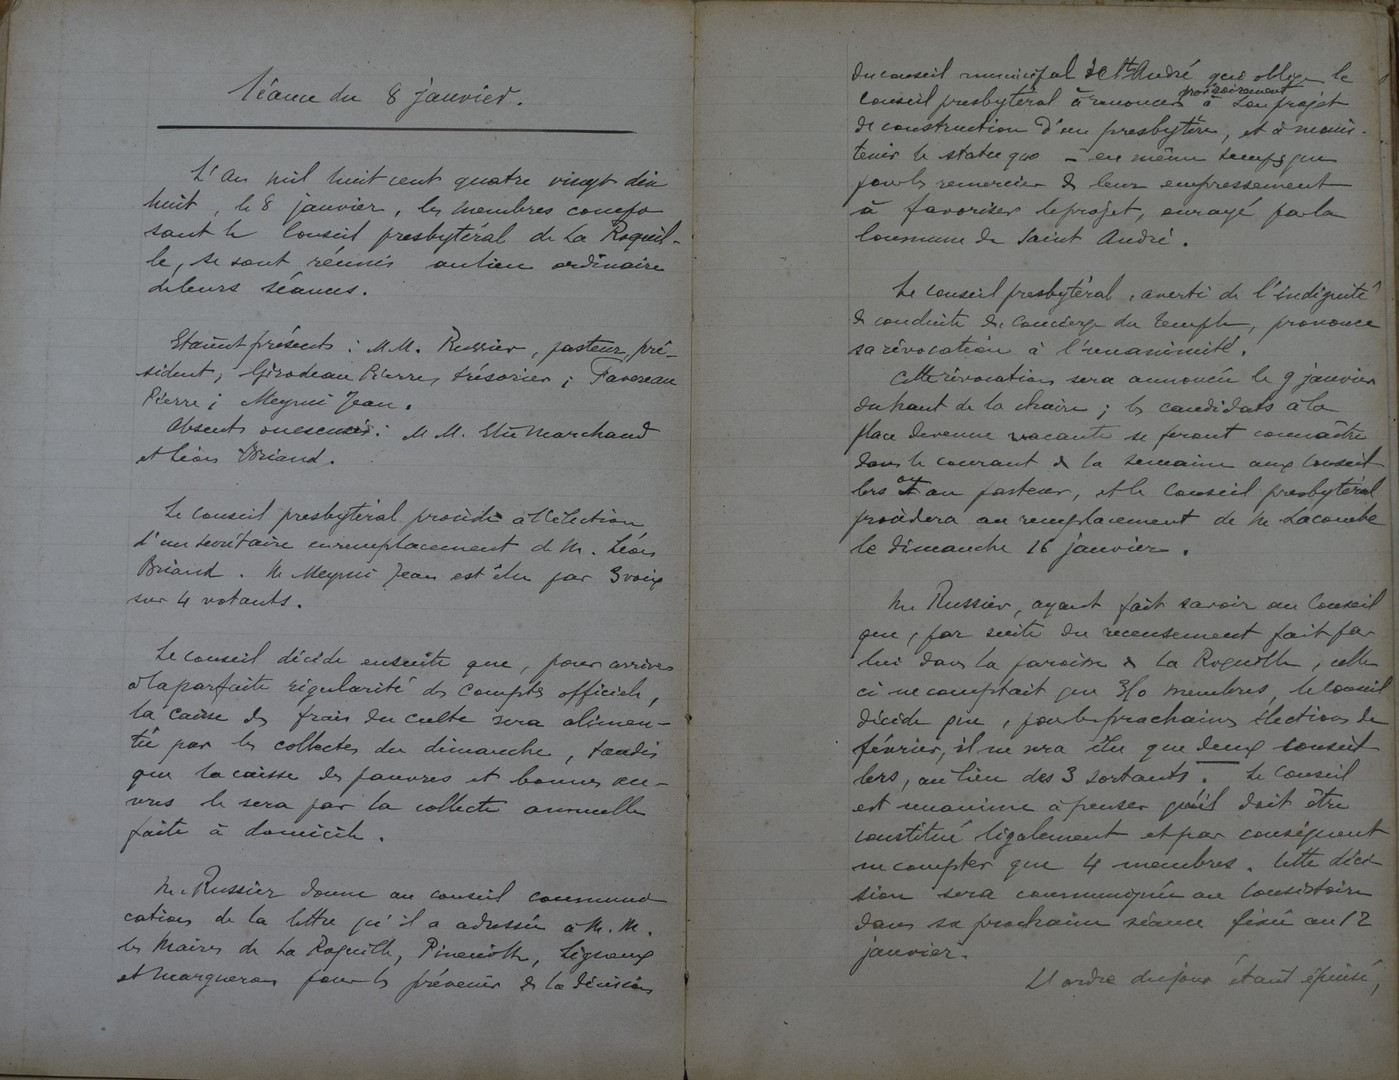 Séance du 8 janvier.
L'An mil huit cent quatre vingt dix
huit, le 8 janvier, les membres compo
sant le Conseil presbytéral de La Roquil-
le, se sont réunis au lieu ordinaire
de leurs séances.
Etaient présents : M.M. Russier, pasteur, pré-
sident ; Girodeau Pierre, trésorier ; Favereau
Pierre ; Meynié Jean.
Absents : M.M. Elie Marchand
et Léon Briand.
Le Conseil presbytéral procède à l'élection
d'un secrétaire en remplacement de M. Léon
Briand. M. Meynié Jean est élu par 3 voix
sur 4 votants.
Le conseil décide ensuite que, pour arriver
à la parfaite régularité des comptes officiels,
la caisse des frais du culte sera alimen-
tée par les collectes du dimanche, tandis
que la caisse des pauvres et bonnes œu-
vres le sera par la collecte annuelle
faite à domicile.
M. Russier donne au conseil communi
cation de la lettre qu'il a adressée à M.M.
les Maires de La Roquille, Pineuilh, Ligueux
et Margueron pour les prévenir de la décision
du conseil municipal de St André qui oblige le
conseil presbytéral à renoncer provisoirement à son projet
de construction d'un presbytère, et à main-
tenir le statu quo - en même temps que
pour les remercier de leur empressement
à favoriser le projet, enrayé par la
Commune de Saint André.
Le conseil presbytéral, averti de l'indignité
de conduite du concierge du temple, prononce
sa révocation à l'unanimité.
Cette révocation sera annoncée le 9 janvier
du haut de la chaire ; les candidats à la
place devenue vacante se feront connaître
dans le courant de la semaine aux conseil
lers ou au pasteur, et le Conseil presbytéral
procèdera au remplacement de M. Lacombe
le dimanche 16 janvier.
M. Russier, ayant fait savoir au Conseil
que, par suite du recensement fait par
lui dans la paroisse de La Roquille, celle
ci ne comptait que 310 membres, le Conseil
décide que, pour les prochaines élections de
février, il ne sera élu que deux conseil
lers, au lieu des 3 sortants. Le Conseil
est unanime à penser qu'il doit être
constitué légalement et par conséquent
ne compter que 4 membres. Cette déci
sion sera communiquée au Consistoire
dans sa prochaine séance fixée au 12
janvier.
L'ordre du jour étant épuisé,